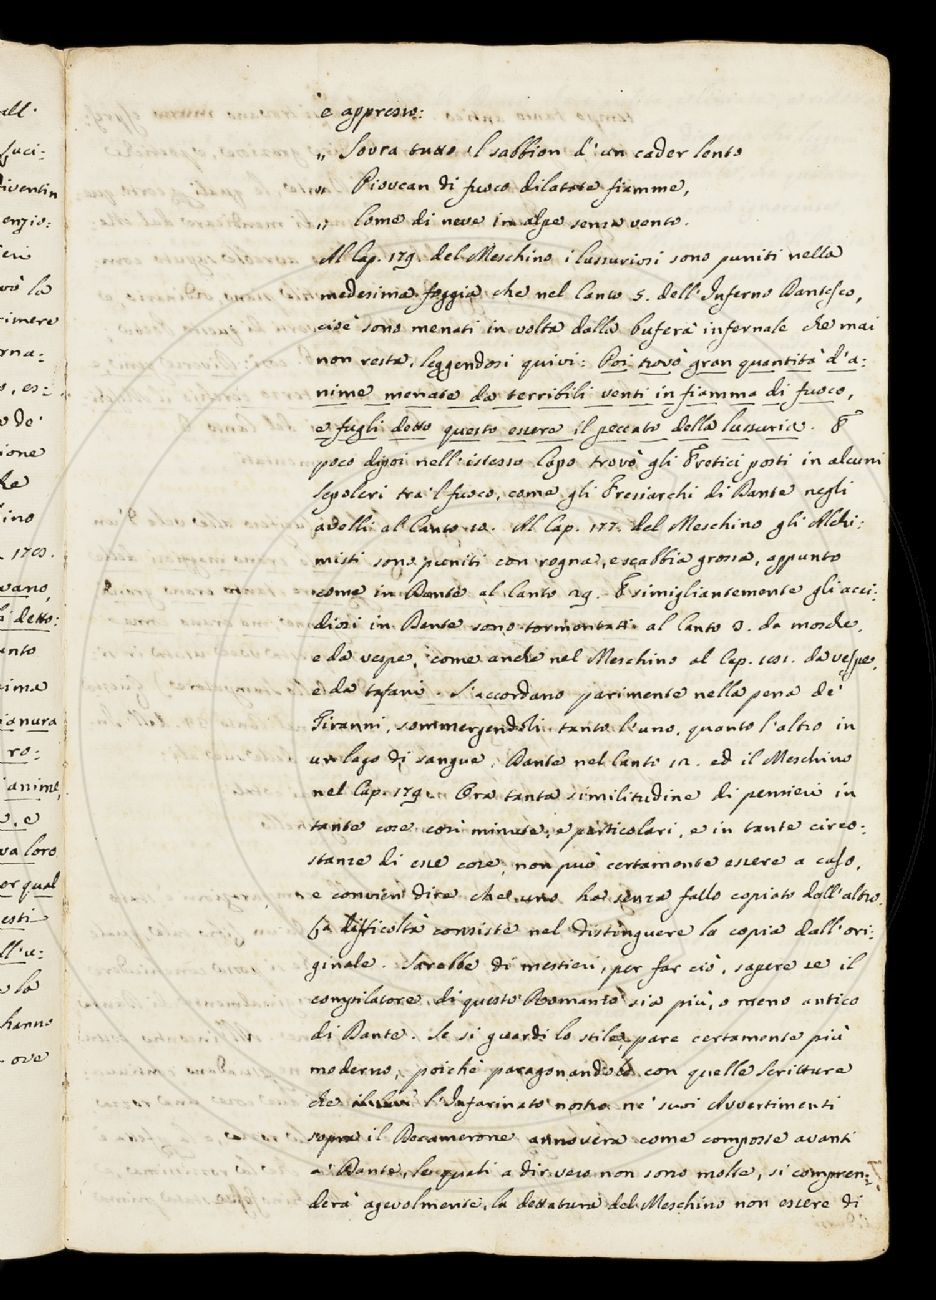 e appresso:
„ Sovra tutto 'l sabbion d'un cader lento
„ Piovean di fuoco dilatate fiamme,
„ Come di neve in alpe senza vento.
Al Cap. 179. del Meschino i lussuriosi sono puniti nella
medesima foggia che nel Canto 5. dell'Inferno Dantesco,
cioè sono menati in volta dalla bufera infernale che mai
non resta, leggendosi quivi: Poi trovò gran quantità d'a=
nime menate da terribili venti in fiamma di fuoco,
e fugli detto questo essere il peccato della lussuria. E
poco dipoi nell'istesso Capo trovò gli Eretici posti in alcuni
Sepolcri tra 'l fuoco, come gli Eresiarchi di Dante negli
avelli al Canto 10. Al Cap. 177. del Meschino gli Alchi=
misti sono puniti con rogna, e scabbia grossa, appunto
come in Dante al Canto 29. E simigliantemente gli acci=
diosi in Dante sono tormentati al Canto 3. da mosche,
e da vespe, come anche nel Meschino al Cap. 181. da vespe,
e da tafani. S'accordano parimente nella pena de'
Tiranni, sommergendoli tanto l'uno, quanto l'altro in
un lago di sangue, Dante nel Canto 12. ed il Meschino
nel Cap. 179. Ora tanta similitudine di pensieri in
tante cose così minute, e particolari, e in tante circo=
stanze di esse cose, non può certamente essere a caso,
e convien dire che uno ha senza fallo copiato dall'altro.
La difficoltà consiste nel distinguere la copia dall'ori=
ginale. Sarebbe di mestieri, per far ciò, sapere se il
compilatore di questo Romanzo sia più, o meno antico
di Dante. Se si guardi lo stile, pare certamente più
moderno, poichè paragonandolo con quelle Scritture
che l'Infarinato nostro ne' suoi Avvertimenti
sopra il Decamerone annovera come composte avanti
a Dante, le quali a dir vero non sono molte, si compren=
derà agevolmente, la dettatura del Meschino non essere di
all'
suci=
diventin
enzio=
ieri
vò la
rimere
rna=
o, es=
de'
ione
che
ino
1703.
vano,
detto:
anto
ima
ianura
ro=
anime,
e
va loro
or qual
esti
ll'u=
la
hanno
ove